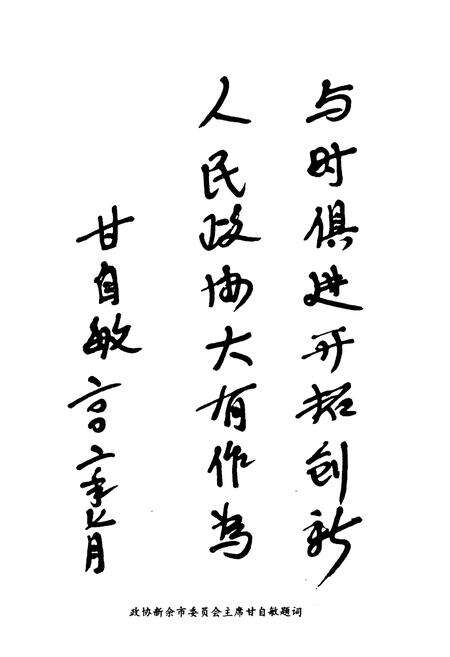 与时俱进开拓创新
人民政协大有作为
甘自敏
二〇〇二年七月
政协新余市委员会主席甘自敏题词